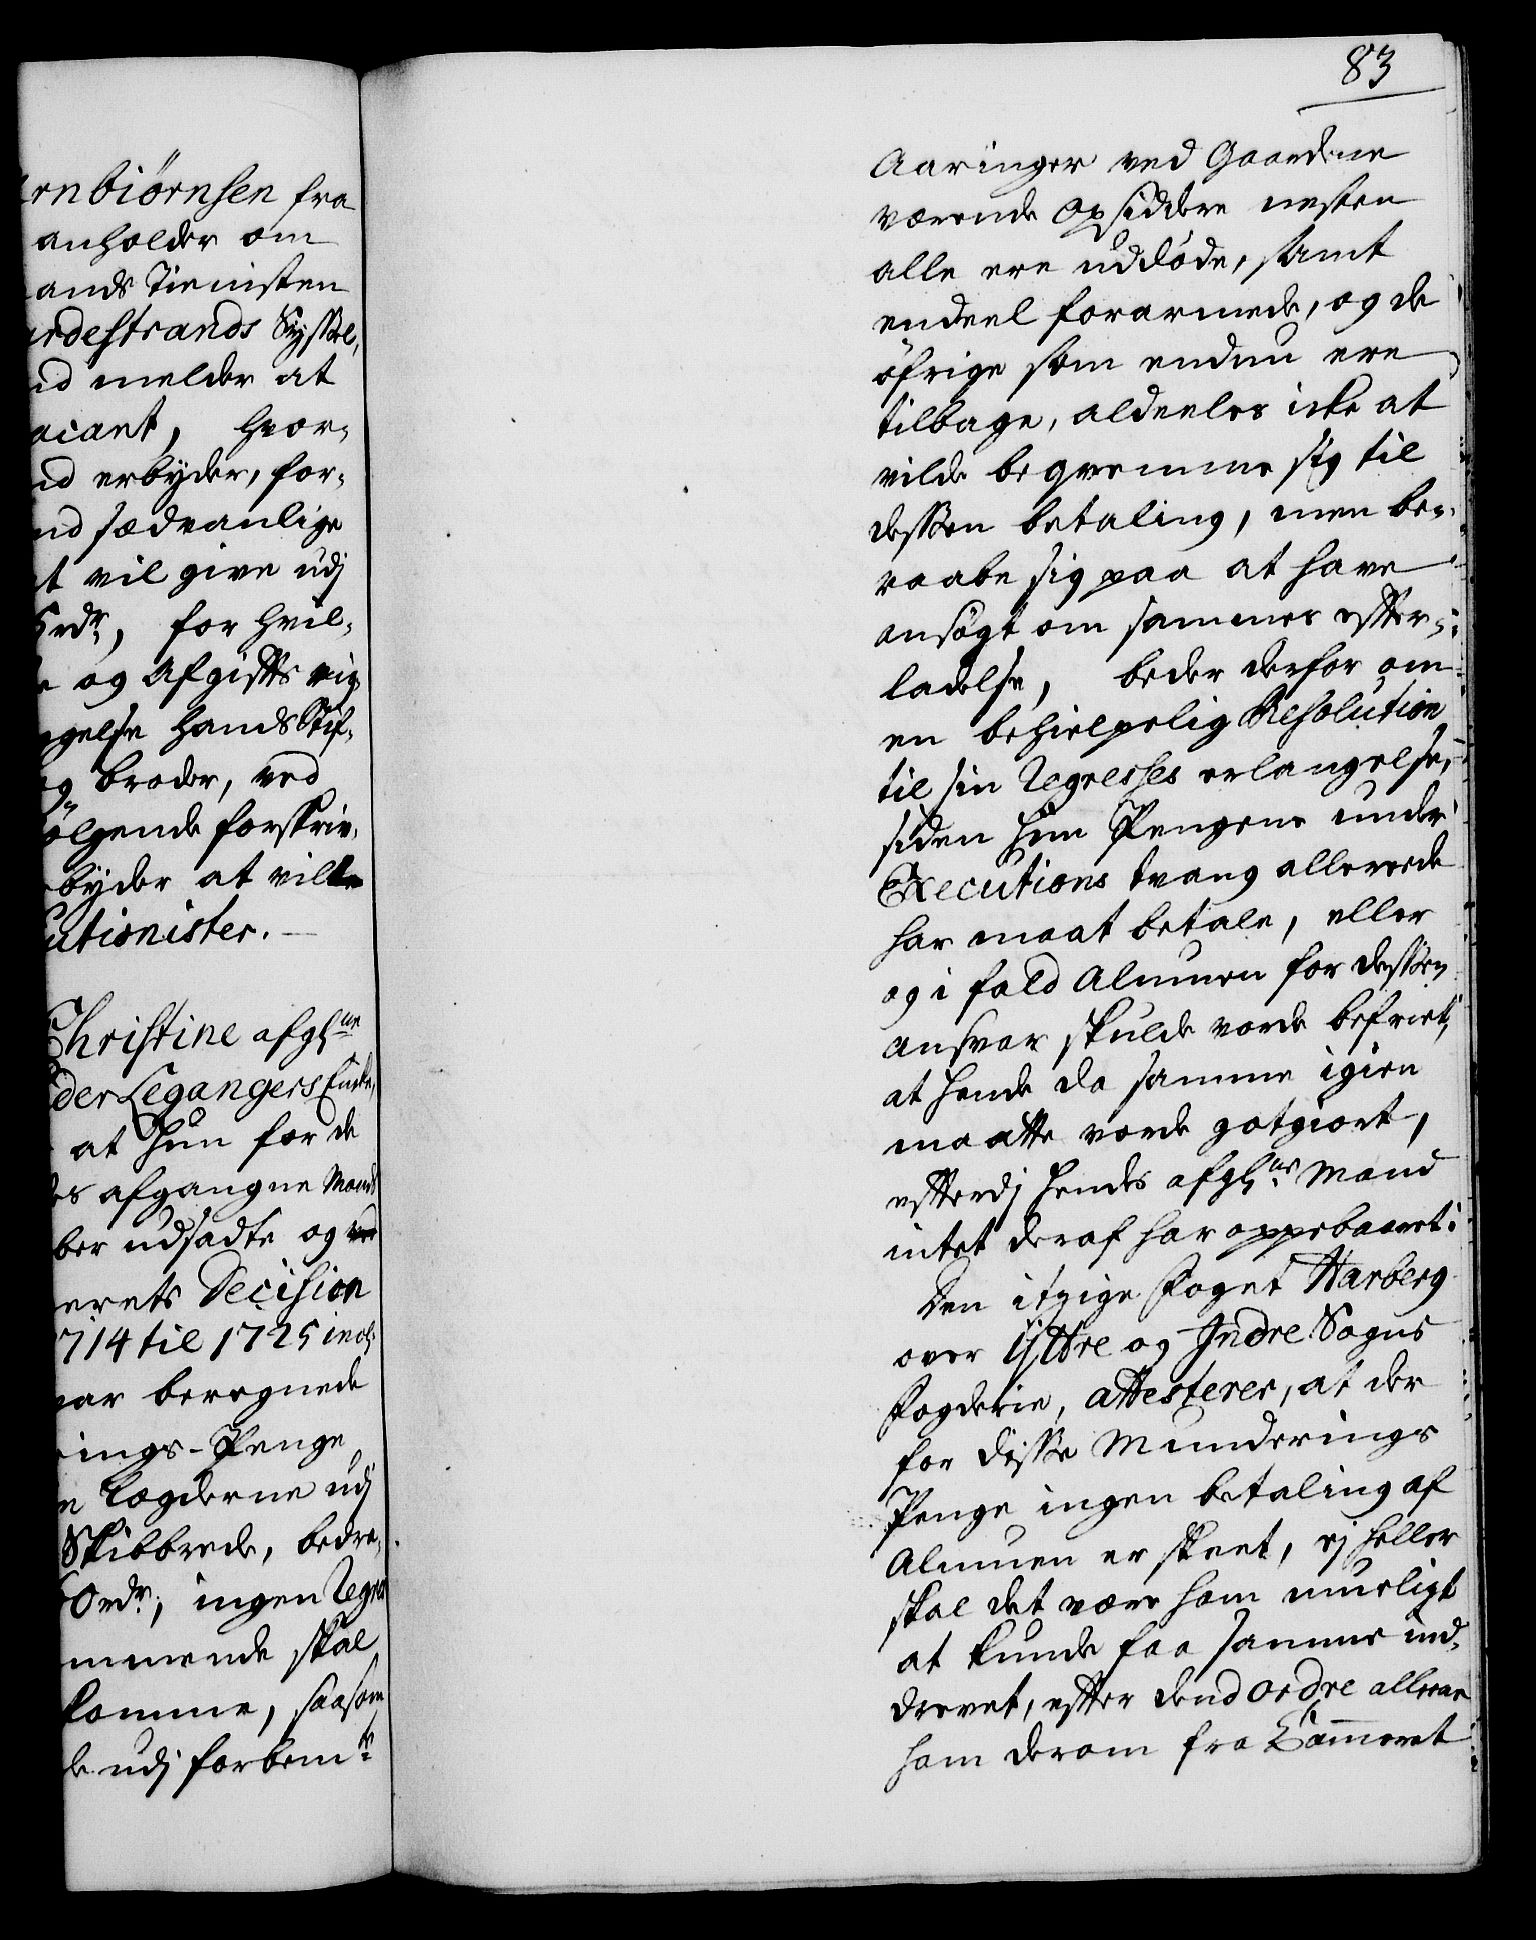 rnbiørnsen fra
anholder om
ands Tienisten
rdestrands Syssel,
nd melder at
acant, hvor-
nd erbyder, for-
nd sædvanlige
t vil give udj
Crdr, for hvil-
og Afgiffts vig
gelse hands Stif-
og broder, ved
følgende forskriv-
byder at ville
utionister.
Christine afghne
der Legangers Enke,
at hun for de
es afgangne Mands
ber udsadte og
erets Decision
1714 til 1725 incl:
ar beregnede
ings-Penge
Lægderne udj
Skibbrede, bedra-
Ordr; ingen Regres
mmende skal
komme, saasom
de udj forbemte
83
Aaringer ved Gaardene
værende Opsiddere nesten
alle ere uddöde, samt
endeel forarmede, og de
öfrige som endnu ere
tilbage, aldeeles icke at
vilde beqvemme sig til
dessen betaling, men be-
raabe sig paa at have
ansögt om sammes effter-
ladelse, beder derfor om
en behielpelig Resolution
til sin Regresses erlangelse,
siden hun Pengene under
Executions tvang allereede
har maat betale, eller
og i fald Almuen for dessen
ansvar skulde vorde befriet,
at hende da samme igien
maatte vorde gotgiort,
effterdj hendes afghne Mand
intet deraf har oppebaaret.
Den itzige Foget Harberg
over Yttre og Indre Sogns
Fogderie, attesterer, at der
for disse Munderings
Penge ingen betaling af
Almuen er skeet, ej heller
skal det være ham mueligt
at kunde faa samme ind-
drevet, effter dend Ordre allene
ham derom fra Cammeret